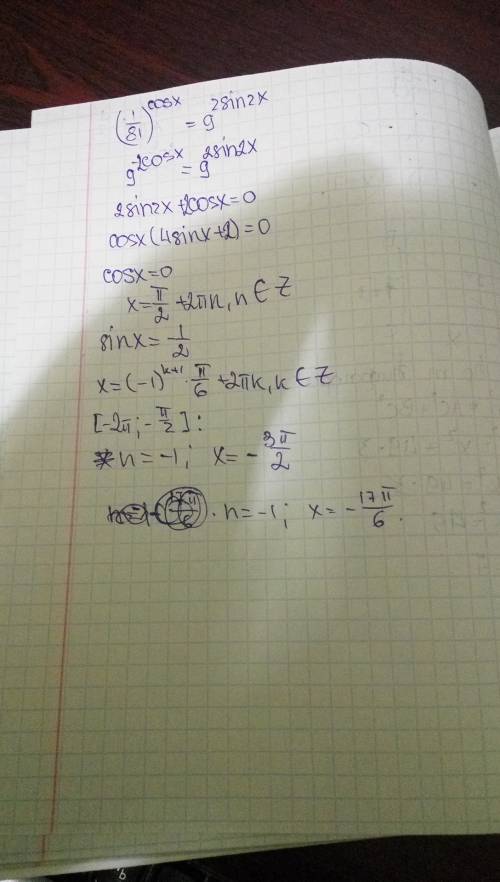 (1/81)^cosx = 9^2sin2x
9^-2cosx = 9^2sin2x
2sin2x+2cosx=0
cosx(4sinx+2)=0
cosx=0
x=π/2+2πn, n∈Z
sinx=-1/2
x=(-1)^k+1·π/6+2πk, k∈Z
[-2π;-π/2]:
n=-1; x=-3π/2
n=-1; x=-17π/6.